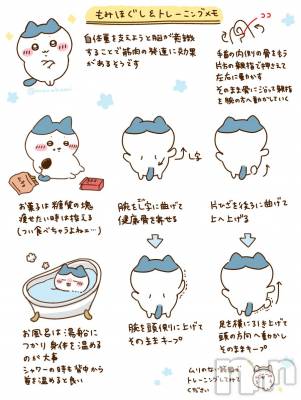 もみほぐし&トレーニングメモ
自体重を支えようと脳が奮起
することで筋肉の発達に効果
があるそうです
手首の内側の骨をもう
片方の親指で押さえて
左右に動かす
そのまま骨に沿って親指
を腕の方へ動かしていく
お菓子は糖質の塊
痩せたい時は控える
(つい食べちゃうよねェ…)
し字
腕をL字に曲げて
健康骨を寄せる
片ひざを後ろに曲げて
上へ上げる
お風呂は湯船に
つかり身体を温める
のが大事
シャワーの時も背中から
首を温めると良い
腕を頭側に上げて
そのままキープ
足を横に引き上げて
頭の方向へ動かし
そのままキープ
ムリのない範囲で
トレーニングしてみて
ください